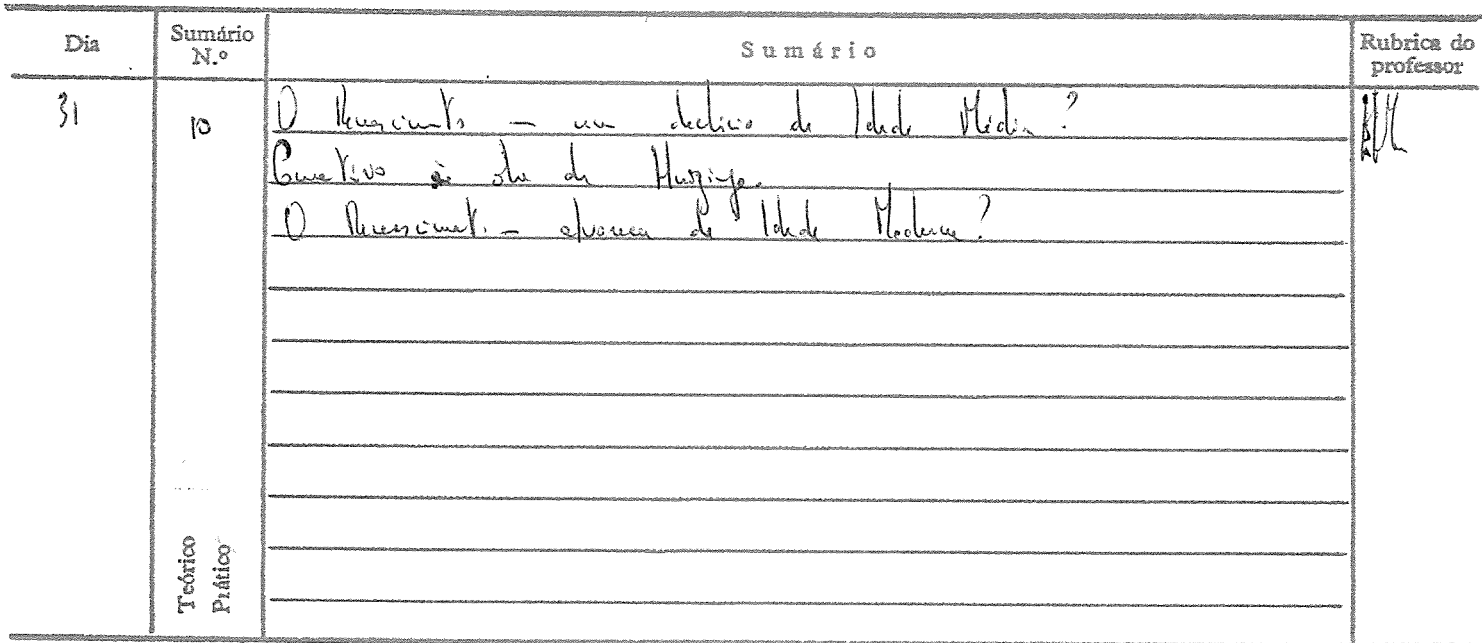 Dia
Sumário N.º
Sumário
Rubrica do professor
31
10
O Renascimento — um declínio da Idade Média?
à obra de Huizinga.
O Renascimento — alvorecer da Idade Moderna?
Teórico
Prático